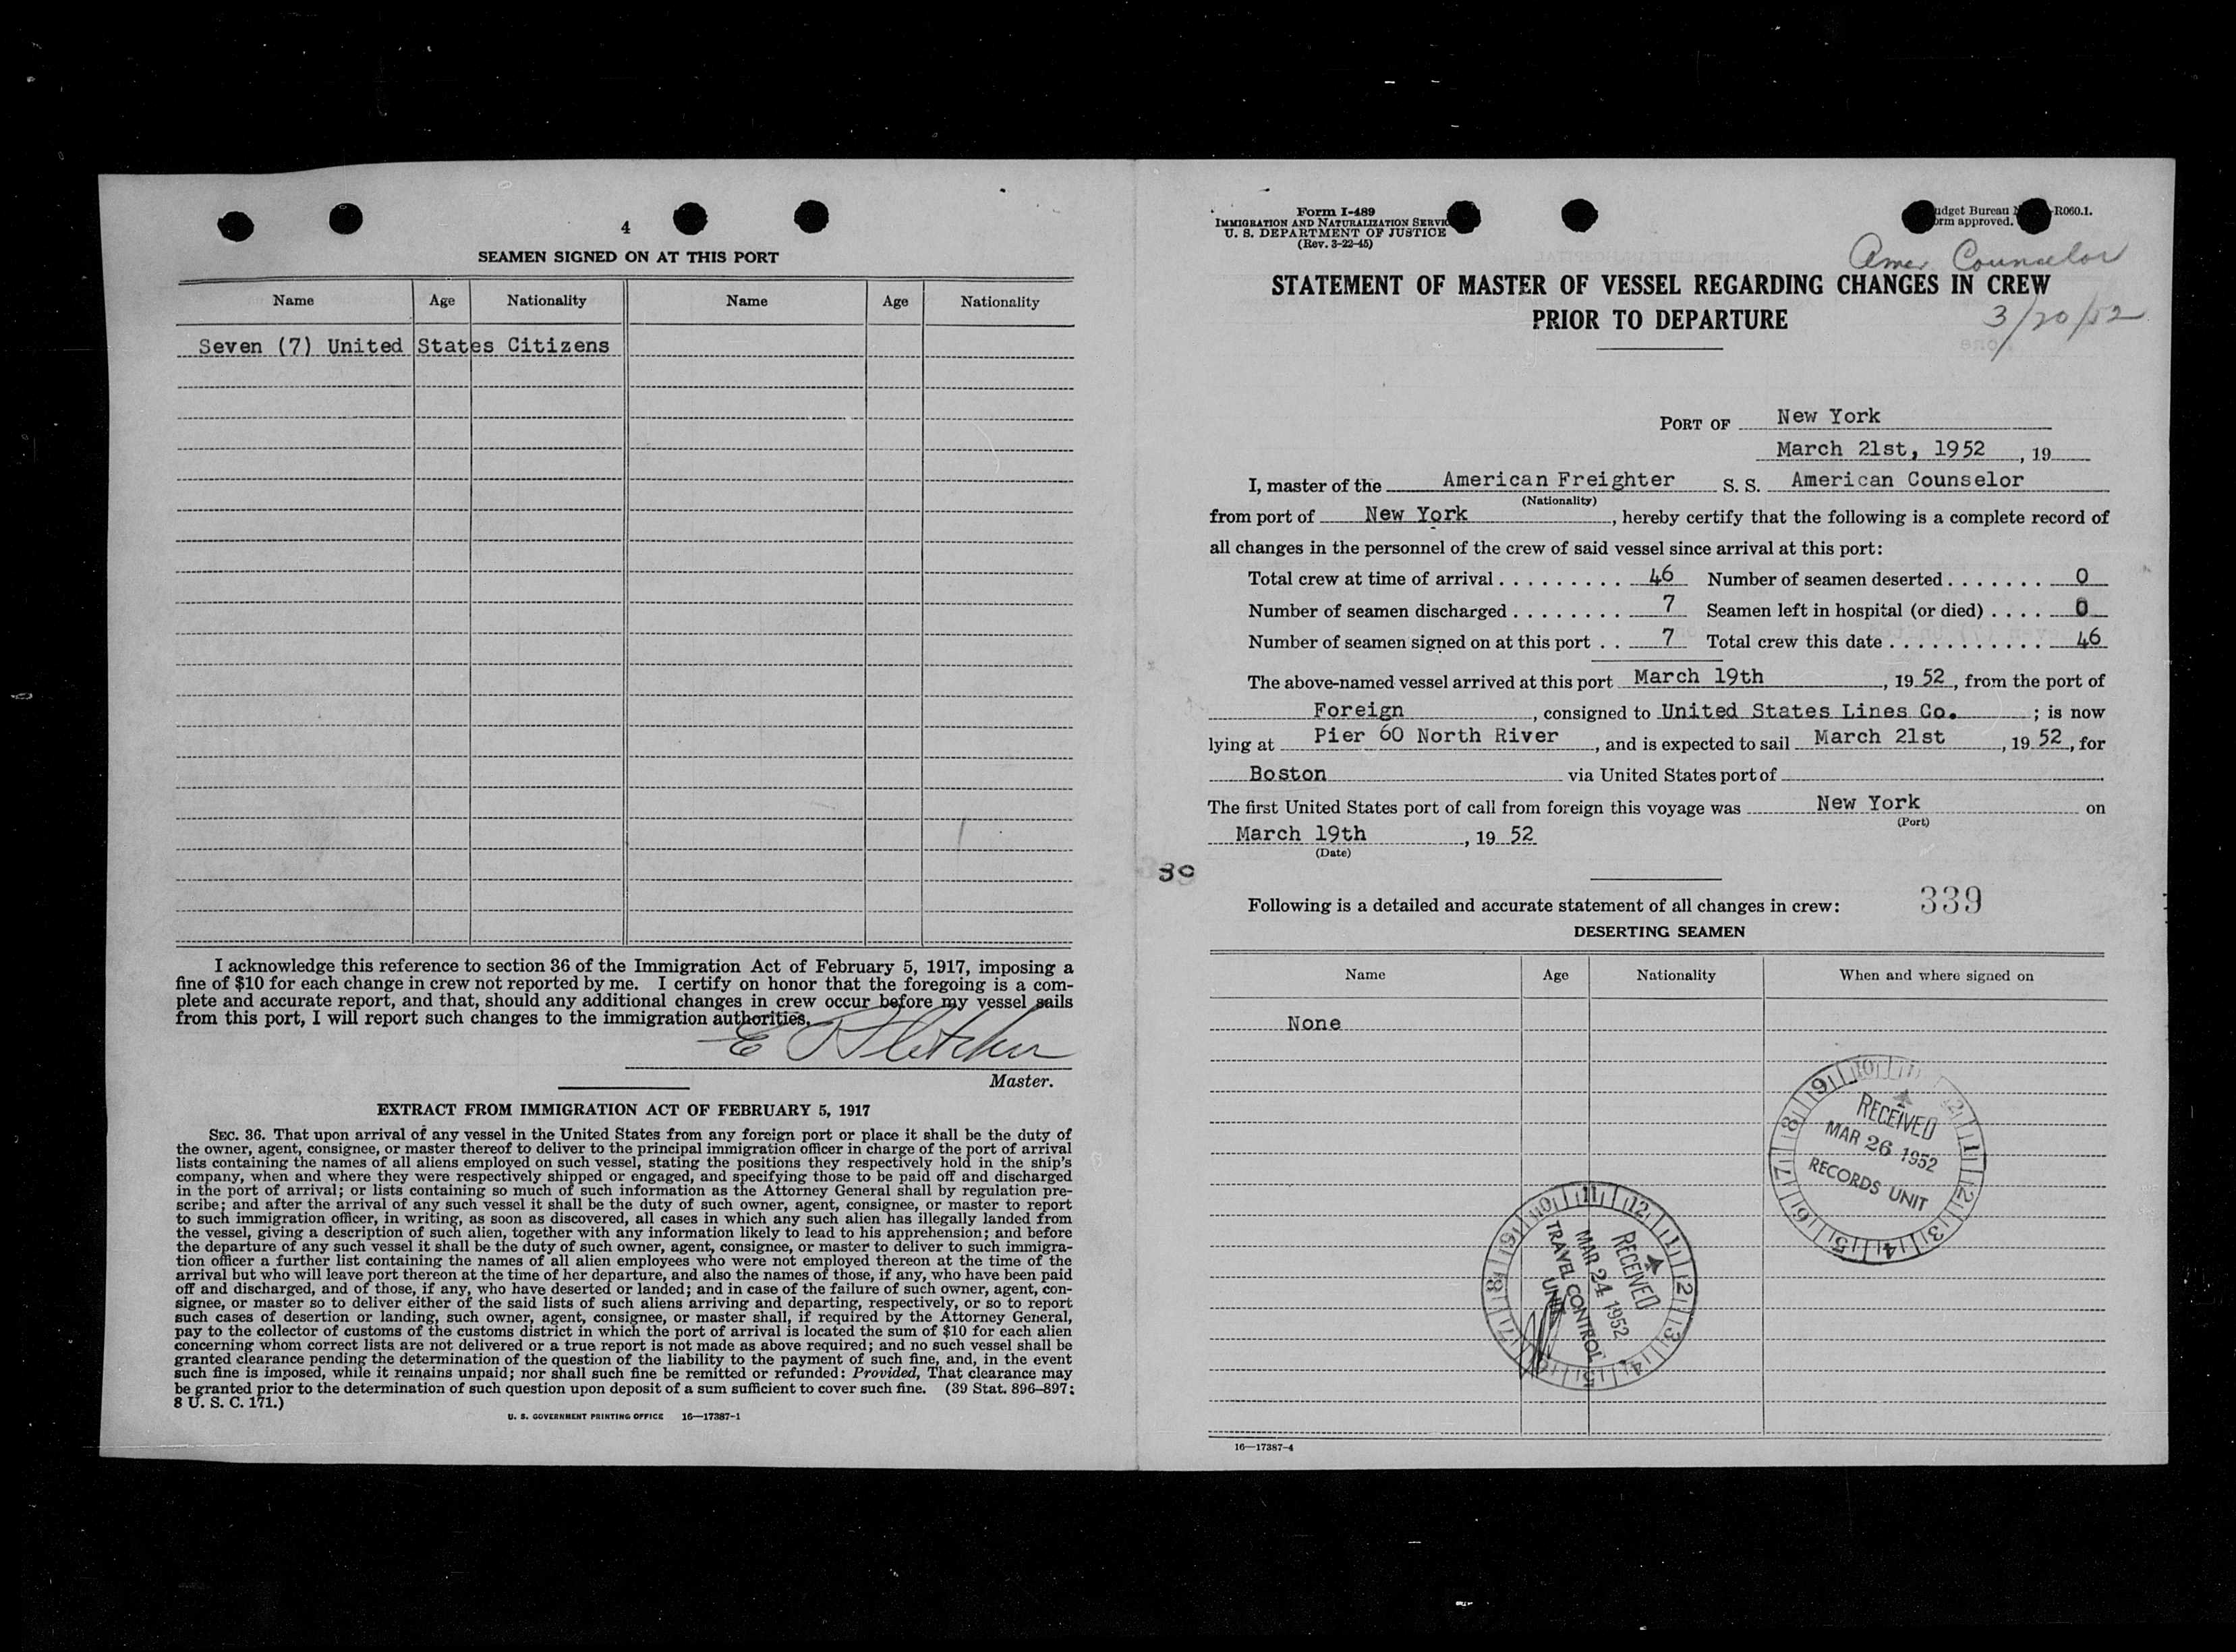 4
SEAMEN SIGNED ON AT THIS PORT
Name Age Nationality Name Age Nationality
Seven (7) United States Citizens
I acknowledge this reference to section 36 of the Immigration Act of February 5, 1917, imposing a
fine of $10 for each change in crew not reported by me. I certify on honor that the foregoing is a com-
plete and accurate report, and that, should any additional changes in crew occur before my vessel sails
from this port, I will report such changes to the immigration authorities.
E Fletcher
Master.
EXTRACT FROM IMMIGRATION ACT OF FEBRUARY 5, 1917
SEC. 36. That upon arrival of any vessel in the United States from any foreign port or place it shall be the duty of
the owner, agent, consignee, or master thereof to deliver to the principal immigration officer in charge of the port of arrival
lists containing the names of all aliens employed on such vessel, stating the positions they respectively hold in the ship's
company, when and where they were respectively shipped or engaged, and specifying those to be paid off and discharged
in the port of arrival; or lists containing so much of such information as the Attorney General shall by regulation pre-
scribe; and after the arrival of any such vessel it shall be the duty of such owner, agent, consignee, or master to report
to such immigration officer, in writing, as soon as discovered, all cases in which any such alien has illegally landed from
the vessel, giving a description of such alien, together with any information likely to lead to his apprehension; and before
the departure of any such vessel it shall be the duty of such owner, agent, consignee, or master to deliver to such immigra-
tion officer a further list containing the names of all alien employees who were not employed thereon at the time of the
arrival but who will leave port thereon at the time of her departure, and also the names of those, if any, who have been paid
off and discharged, and of those, if any, who have deserted or landed; and in case of the failure of such owner, agent, con-
signee, or master so to deliver either of the said lists of such aliens arriving and departing, respectively, or so to report
such cases of desertion or landing, such owner, agent, consignee, or master shall, if required by the Attorney General,
pay to the collector of customs of the customs district in which the port of arrival is located the sum of $10 for each alien
concerning whom correct lists are not delivered or a true report is not made as above required; and no such vessel shall be
granted clearance pending the determination of the question of the liability to the payment of such fine, and, in the event
such fine is imposed, while it remains unpaid; nor shall such fine be remitted or refunded: Provided, That clearance may
be granted prior to the determination of such question upon deposit of a sum sufficient to cover such fine. (39 Stat. 896–897;
8 U. S. C. 171.)
U. S. GOVERNMENT PRINTING OFFICE 16—17387-1
Form I-489
IMMIGRATION AND NATURALIZATION SERVIC
U. S. DEPARTMENT OF JUSTICE
(Rev. 3-22-45)
udget Bureau N -R060.1.
orm approved.
Amer Counselor
STATEMENT OF MASTER OF VESSEL REGARDING CHANGES IN CREW
PRIOR TO DEPARTURE
3/20/52
PORT OF New York
March 21st, 1952, 19
I, master of the American Freighter S. S. American Counselor
(Nationality)
from port of New York, hereby certify that the following is a complete record of
all changes in the personnel of the crew of said vessel since arrival at this port:
Total crew at time of arrival . . . . . . . . . 46 Number of seamen deserted . . . . . . . 0
Number of seamen discharged . . . . . . . . 7 Seamen left in hospital (or died) . . . . 0
Number of seamen signed on at this port . . 7 Total crew this date . . . . . . . . . . . 46
The above-named vessel arrived at this port March 19th, 19 52, from the port of
Foreign, consigned to United States Lines Co.; is now
lying at Pier 60 North River, and is expected to sail March 21st, 19 52, for
Boston via United States port of
The first United States port of call from foreign this voyage was New York on
(Port)
March 19th, 19 52
(Date)
30
Following is a detailed and accurate statement of all changes in crew: 339
DESERTING SEAMEN
Name Age Nationality When and where signed on
None
RECEIVED
MAR 26 1952
RECORDS UNIT
RECEIVED
MAR 24 1952
TRAVEL CONTROL
UNIT
16—17387-4